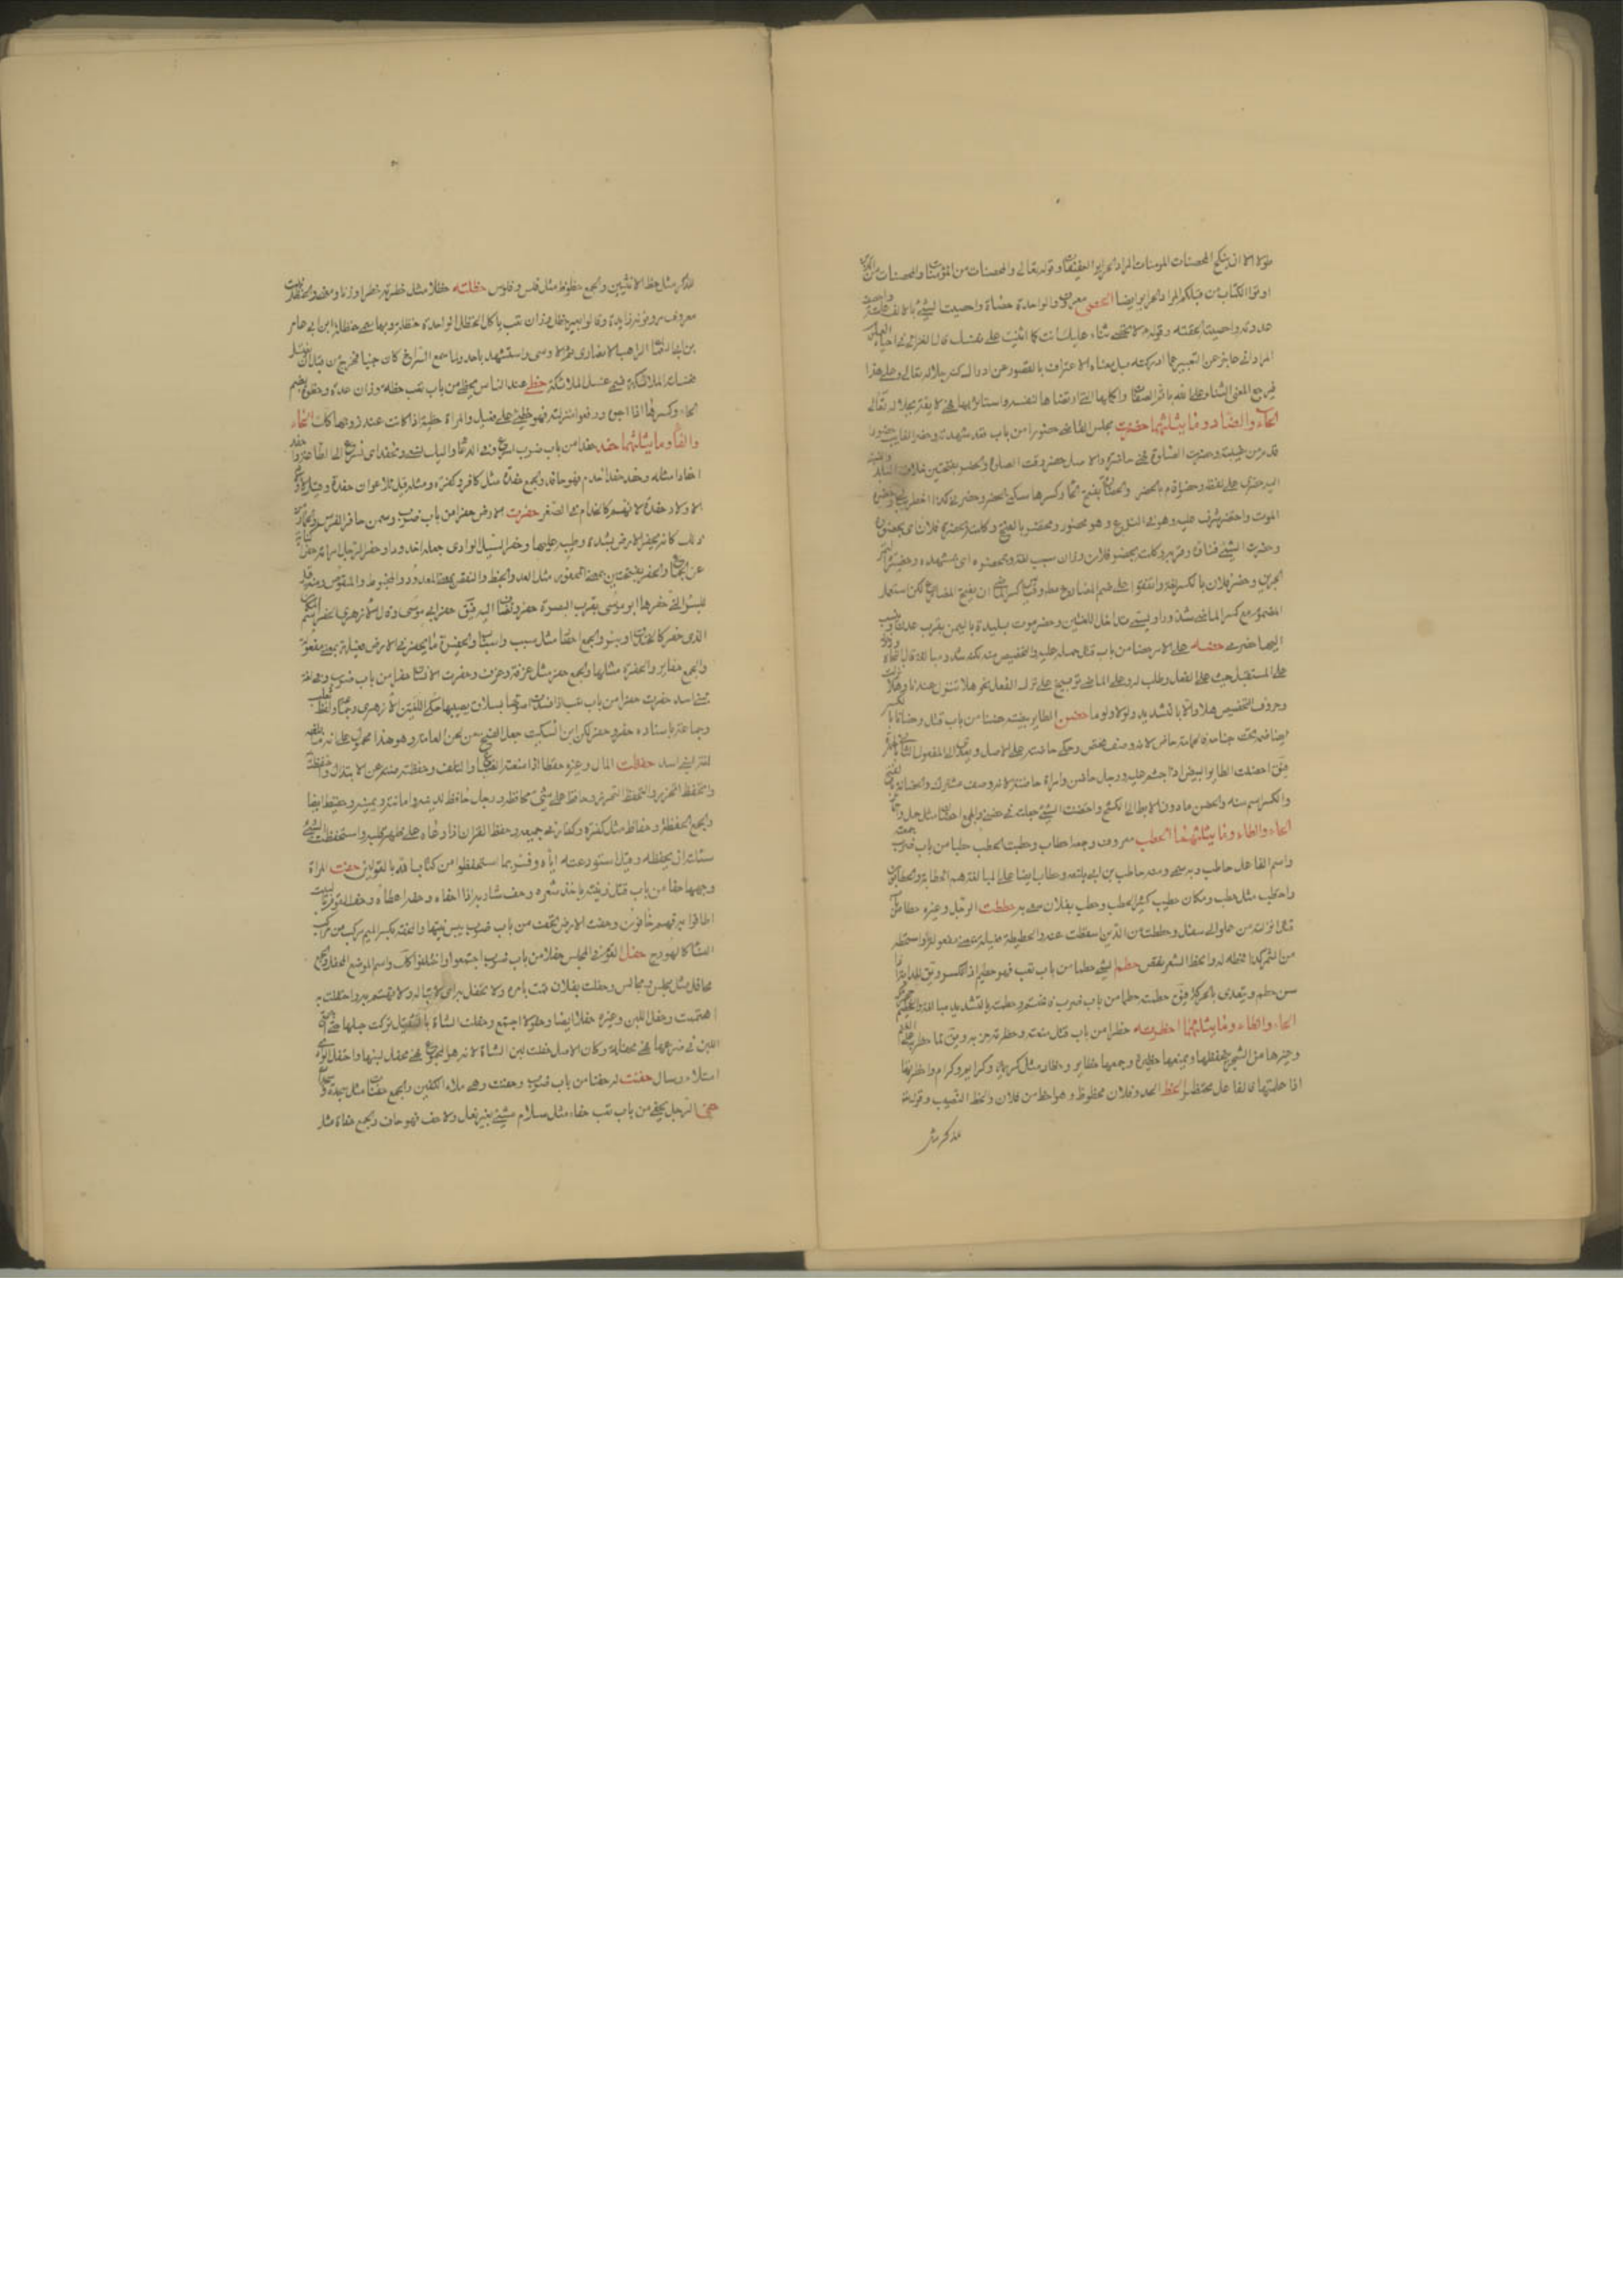 طولا الا ان ينكح المحصنات المومنات المراد الحرائر العفيفات وقوله تعالى والمحصنات من المؤمنات والمحصنات من الذين
اوتوا الكتاب من قبلكم المراد الحرائر ايضا الحصى معروف والواحدة حصاة واحصيت الشيء بالالف علمته
عددته واحصيته اطقته وقوله لا نحصى ثناء عليك انت كما اثنيت على نفسك قال الغزالى فى الاحياء ليس
المراد انى عاجز عن التعبير عما ادركته بل معناه الاعتراف بالقصور عن ادراك كنه جلاله تعالى وعلى هذا
فيرجع المعنى الثناء على الله باتم الصفات واكملها التى ارتضاها لنفسه واستاثر بها فهى لا تليق بجلاله تعالى
الحاء والضاد وما يثلثهما حضرت مجلس القاضى حضورا من باب قعد شهدته وحضر الغايب حضورا
قدم من غيبته وحضرت الصلوة فهى حاضرة والاصل حضر وقت الصلوة والحضر بفتحتين خلاف البدو والنسبة
اليه حضرى على لفظه وحضر اقام بالحضر والحضارة بفتح الحاء وكسرها سكون الحضر وحضرنى كذا خطر ببالى وحضره
الموت واحتضره اشرف عليه فهو فى النزع وهو محضور ومحتضر بالفتح وكلمته بحضرة فلان اى بحضوره
وحضرة الشيء فناؤه وقربه وكلمته بحضر فلان وزان سبب لغة وبمحضره اى بمشهده وحضيرة التمر
الجرين وحضر فلان بالكسر لغة واتفقوا على ضم المضارع مطلقا وقياس كسر الماضى ان يفتح المضارع لكن استعمل
المضموم مع كسر الماضى شذوذا ويسمى تداخل اللغتين وحضرموت بليدة باليمن بقرب عدن وينسب
اليها حضرمى حضه على الامر حضا من باب قتل حمله عليه والتحضيض منه لكنه شدد مبالغة قال النحاة ودخوله
على المستقبل حث على الفعل وطلب له وعلى الماضى توبيخ على ترك الفعل نحو هلا تنزل عندنا وهلا نزلت
وحروف التحضيض هلا والا بالتشديد ولولا ولوما حضن الطاير بيضه حضنا من باب قتل وحضانا بالكسر
ايضا ضمه تحت جناحه فالحمامة حاضن لانه وصف مختص وحكى حاضنة على الاصل ويعدى الى المفعول الثانى بالهمزة
فيق احضنت الطاير البيض اذا جثم عليه ورجل حاضن وامراة حاضنة لانه وصف مشترك والحضانة بالفتح
والكسر اسم منه والحضن ما دون الابط الى الكشح واحتضنت الشيء جعلته فى حضنى والجمع احضان مثل حمل واحمال
الحاء والطاء وما يثلثهما الحطب معروف وجمعه احطاب وحطبت الحطب حطبا من باب ضرب جمعته
واسم الفاعل حاطب وبه سمى ومنه حاطب بن ابى بلتعة وحطاب ايضا على المبالغة وهم الحطابة والحطابون
واحتطب مثل حطب ومكان حطيب كثير الحطب وحطب بفلان سعى به حططت الرحل وغيره حطا من باب
قتل انزلته من علو الى سفل وحططت من الدين اسقطت عنه والحطيطة فعيلة بمعنى مفعولة واستحطه
من الثمن كذا فحطه له وانحط السعر نقص حطم الشيء حطما من باب تعب فهو حطيم اذا تكسر ويق للدابة اذا
اسن حطم ويتعدى بالحركة فيق حطمته حطما من باب ضرب فانحطم وحطمته بالتشديد مبالغة والحطيم حجر مكة
الحاء والظاء وما يثلثهما حظرته حظرا من باب قتل منعته وحظرته حزته ويق لما حظر به على الغنم
وغيرها من الشجر ليمنعها ويحفظها حظيرة وجمعها حظاير وحظار مثل كريمة وكرايم وكرام واحتظرتها
اذا عملتها فالفاعل محتظر الحظ الجد وفلان محظوظ وهو احظ من فلان والحظ النصيب وقوله
للذكر مثل
للذكر مثل حظ الانثيين والجمع حظوظ مثل فلس وفلوس حظلته حظلا مثل حظرته حظرا وزنا ومعنى والحنظل نبت
معروف ونونه زايدة وقالوا بعير حظل وزان تعب ياكل الحنظل الواحدة حنظلة وبها سمى حنظلة ابن ابى عامر
بن النعمان الراهب الانصارى ثم الاوسى واستشهد باحد ولما سمع الصراخ كان جنبا فخرج من قبل ان يغتسل
فغسلته الملائكة فسمى غسيل الملائكة حظى عند الناس يحظى من باب تعب حظة وزان عدة وحظوة بضم
الحاء وكسرها اذا احبوه ورفعوا منزلته فهو حظى على فعيل والمراة حظية اذا كانت عند زوجها كذلك الحاء
والفاء وما يثلثهما حفد حفدا من باب ضرب اسرع وفى الدعاء واليك نسعى ونحفد اى نسرع الى الطاعة واحفد
احفادا مثله وحفد حفدا خدم فهو حافد والجمع حفدة مثل كافر وكفرة ومنه قيل للاعوان حفدة وقيل لاولاد
الاولاد حفدة لانهم كالخدام فى الصغر حفرت الارض حفرا من باب ضرب وسمى حافر الفرس والحمار من
ذلك كانه يحفر الارض بشدة وطيه عليها وحفر السيل الوادى جعله اخدودا وحفر الرجل امراته حفرا كناية
عن الجماع والحفر بفتحتين بمعنى المحفور مثل العدد والخبط والنقض بمعنى المعدود والمخبوط والمنقوض ومنه قيل
للبئر التى حفرها ابو موسى بقرب البصرة حفر وتضاف اليه فيق حفر ابى موسى وقال الازهرى الحفر اسم المكان
الذى حفر كالخندق او بئر والجمع احفار مثل سبب واسباب والحفيرة ما يحفر فى الارض فعيلة بمعنى مفعولة
والجمع حفاير والحفرة مثلها والجمع حفر مثل غرفة وغرف وحفرت الاسنان حفرا من باب ضرب وفى لغة
لبنى اسد حفرت حفرا من باب تعب اذا فسدت اصولها بسلاق يصيبها حكى اللغتين الازهرى وجماعة ولفظ ثعلب
وجماعة باسنانه حفر وحفر لكن ابن السكيت جعل الفتح من لحن العامة وهو هذا محمول على انه ما بلغه
لغة بنى اسد حفظت المال وغيره حفظا اذا منعته الضياع والتلف وحفظته صنته عن الابتذال واحتفظت به
والتحفظ التحرز وحافظ على الشىء محافظة ورجل حافظ لدينه وامانته ويمينه وحفيظ ايضا
والجمع الحفظة وحفاظ مثل كفرة وكفار فى جمعه وحفظ القران اذا وعاه على ظهر قلبه واستحفظته الشيء
سئلته ان يحفظه وقيل استودعته اياه وفسر بما استحفظوا من كتاب الله بالقولين حفت المراة
وجهها حفا من باب قتل زينته باخذ شعره وحف شاربه اذا احفاه وحفه اعطاه وحف القوم بالبيت
اطافوا به فهم حافون وحفت الارض تحف من باب ضرب يبس نبتها والمحفة بكسر الميم مركب من مراكب
النساء كالهودج حفل القوم فى المجلس حفلا من باب ضرب اجتمعوا واحتفلوا كذلك واسم الموضع المحفل والجمع
محافل مثل مجلس ومجالس وحفلت بفلان قمت بامره ولا تحفل بامره اى لا تباله ولا تهتم به واحتفلت به
اهتممت وحفل اللبن وغيره حفلا ايضا وحفولا اجتمع وحفلت الشاة بالتثقيل تركت حلبها حتى اجتمع
اللبن فى ضرعها فهى محفلة وكان الاصل حفلت لبن الشاة لانه هو المجموع فهى محفل لبنها واحتفل الوادى
امتلاء وسال حفنت له حفنا من باب ضرب وحفنة وهى ملاء الكفين والجمع حفنات مثل سجدة وسجدات
حفى الرجل يحفى من باب تعب حفاء مثل سلام مشى بغير نعل ولا خف فهو حاف والجمع حفاة مثل